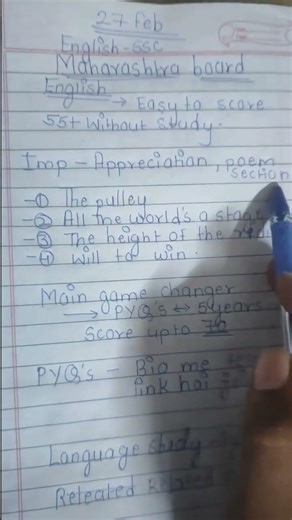 27 Feb
English - SSC
Maharashtra board
English → Easy to score
55+ without study.
Imp - Appreciation, poem
section
-① The pulley
-② All the world's a stage
-③ The height of the
-④ Will to win.
Main game changer
→ PYQ's ↔ 5 years
Score upto 70
PYQ's - Bio me
link hai
Language study
Related